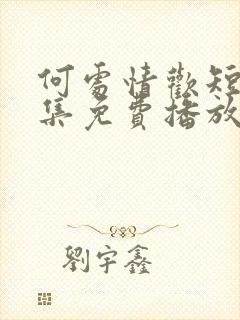 何處情歡短
集免費播放
劉宇鑫